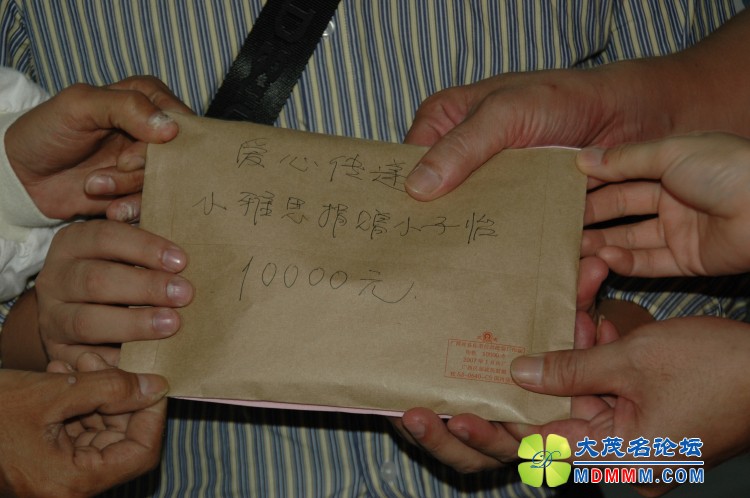 爱心传递
小雅思捐赠小子怡
10000元.
大茂名论坛
MDMMM.COM